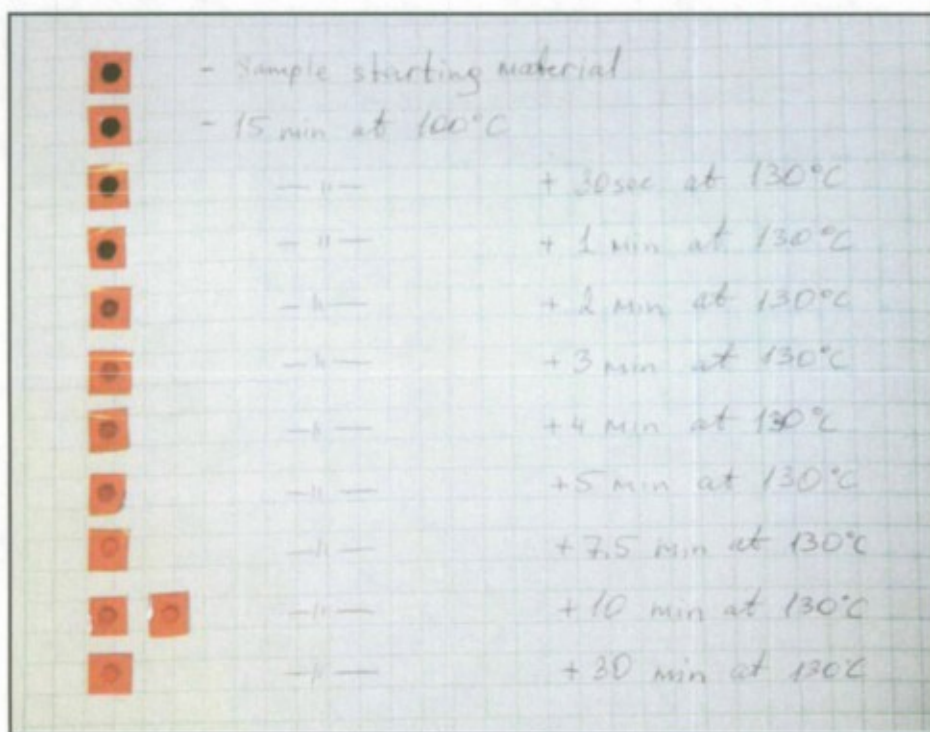 - Sample starting material
- 15 min at 100°C
— 〃 — + 30sec at 130°C
— 〃 — + 1 min at 130°C
— 〃 — + 2 min at 130°C
— 〃 — + 3 min at 130°C
— 〃 — + 4 min at 130°C
— 〃 — + 5 min at 130°C
— 〃 — + 7.5 min at 130°C
— 〃 — + 10 min at 130°C
— 〃 — + 30 min at 130°C